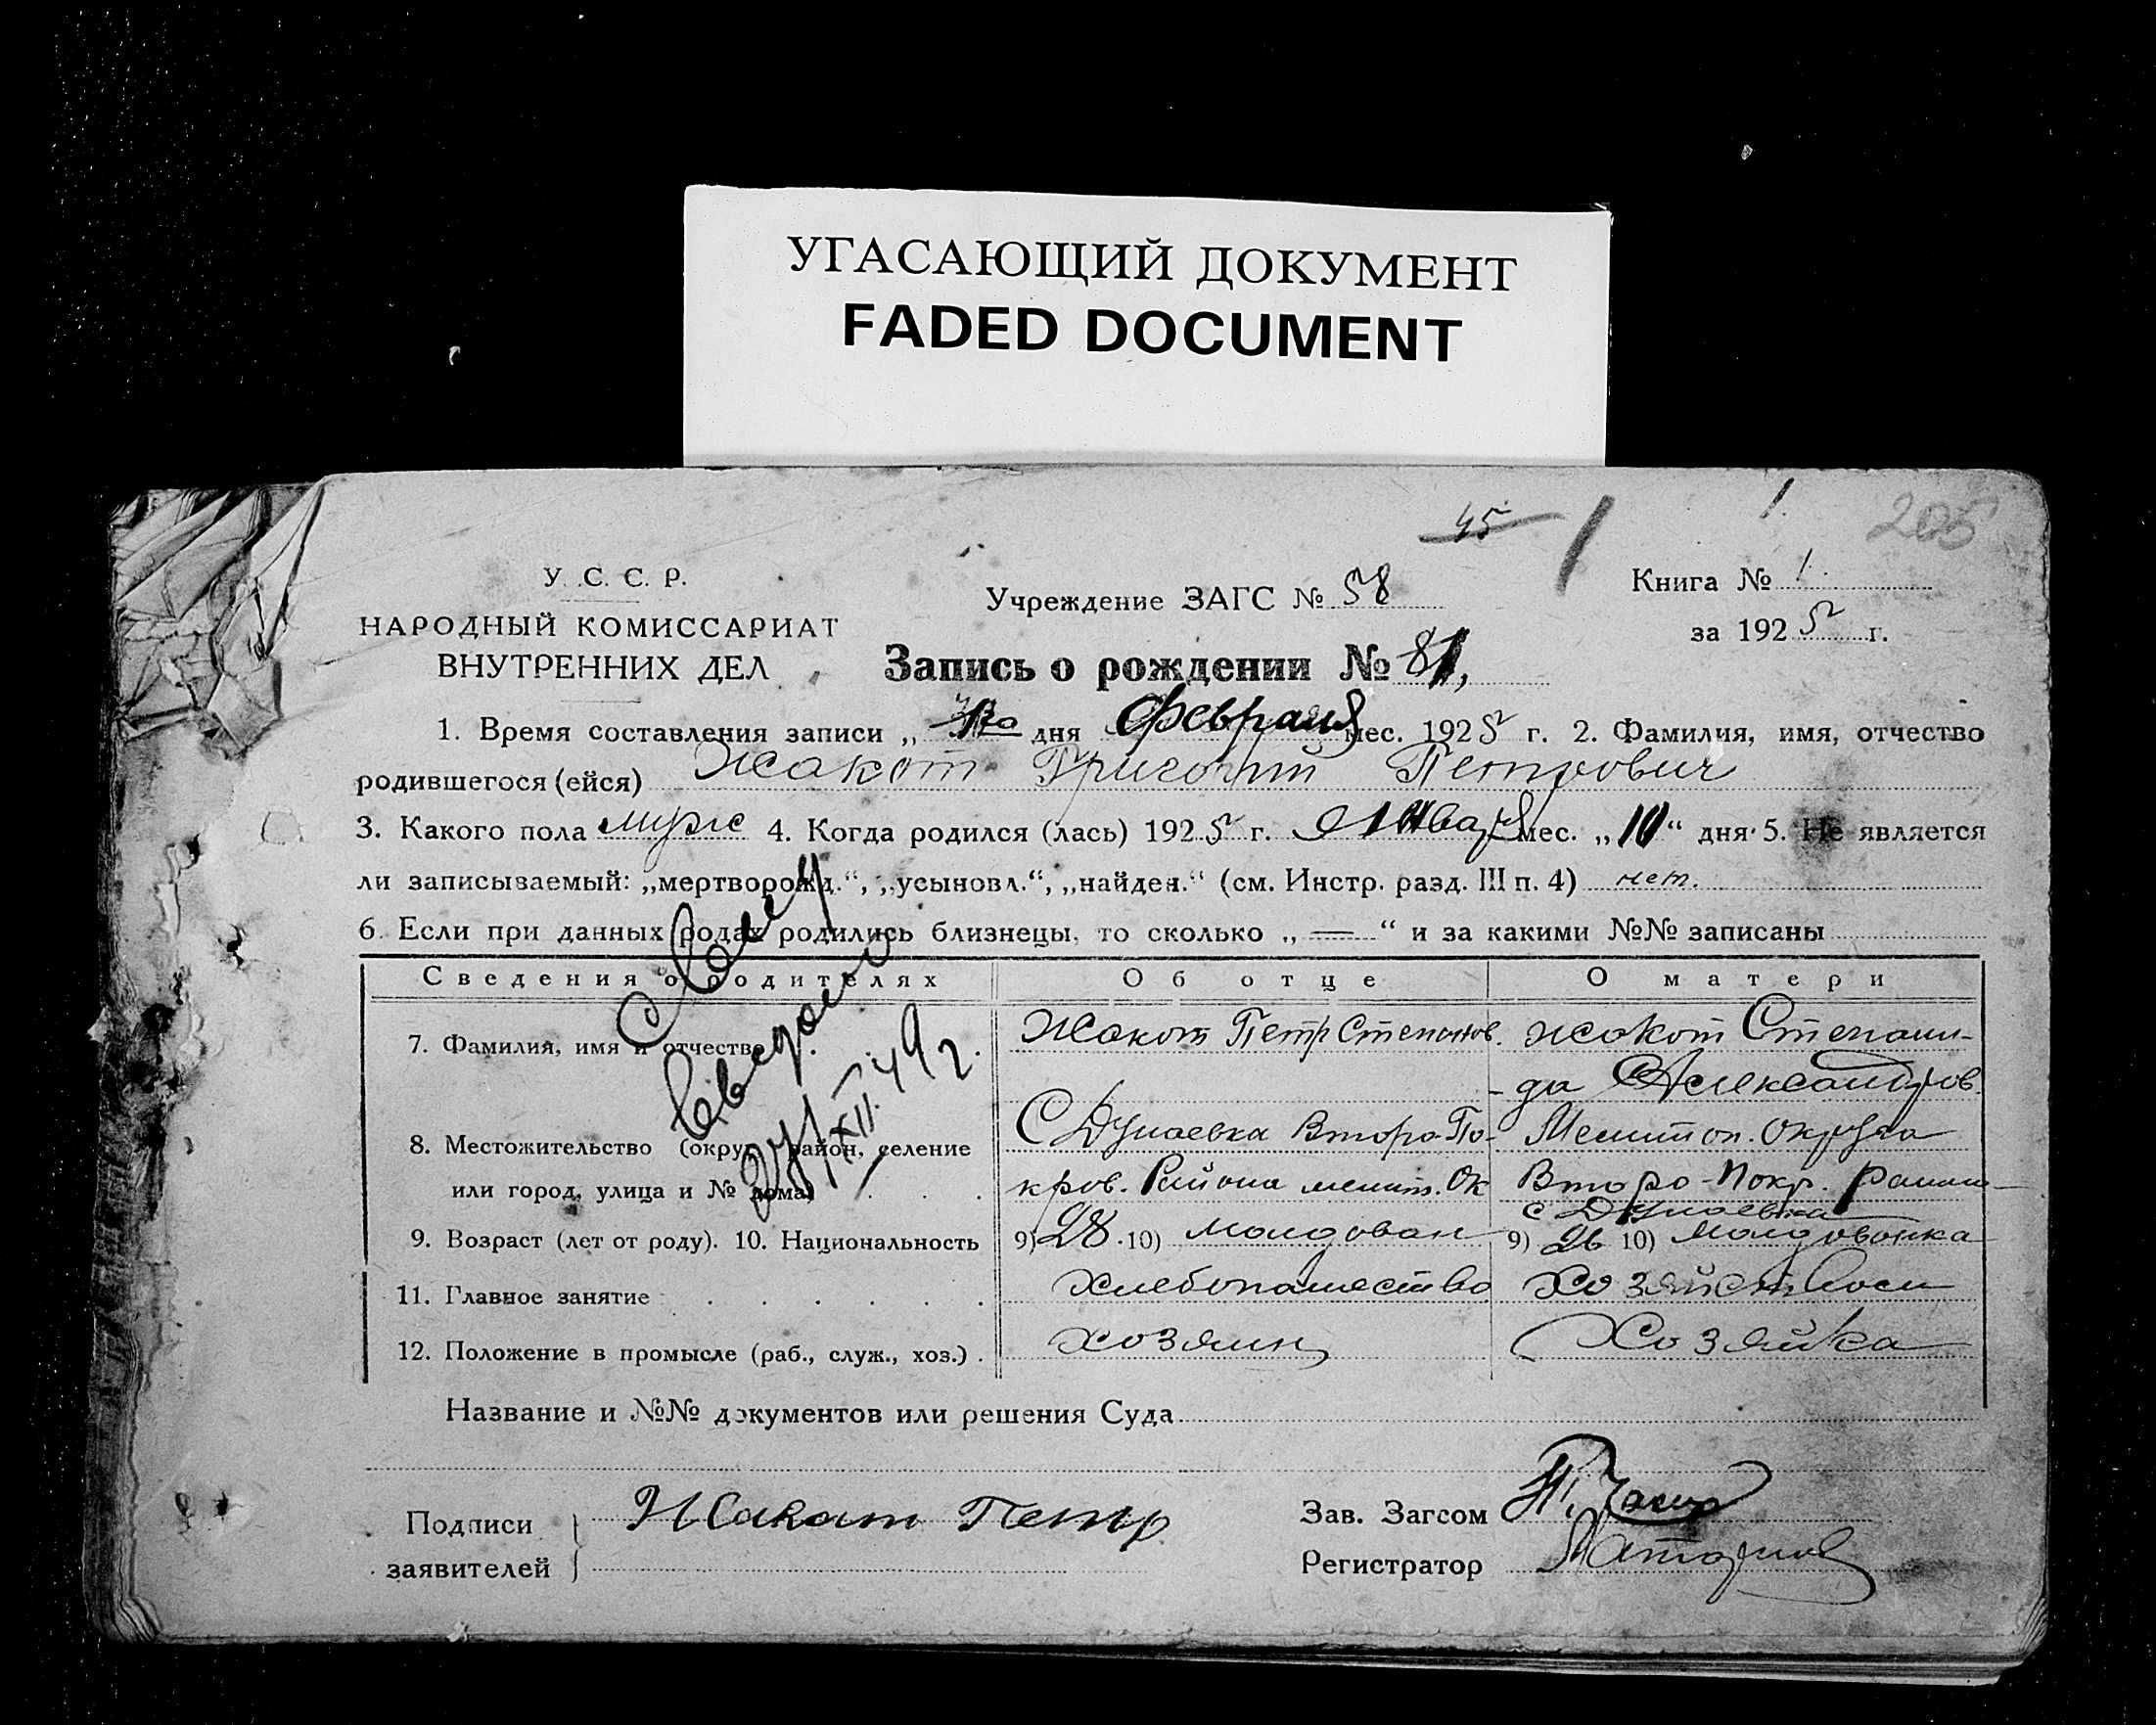 УГАСАЮЩИЙ ДОКУМЕНТ
FADED DOCUMENT
45
1
1.
205
У. С. С. Р.
НАРОДНЫЙ КОМИССАРИАТ
ВНУТРЕННИХ ДЕЛ
Учреждение ЗАГС № 58
Книга № 1.
за 1925 г.
Запись о рождении № 81,
1. Время составления записи „ дня Февраля мес. 1925 г. 2. Фамилия, имя, отчество
родившегося (ейся) Жакот Григорий Петрович
3. Какого пола муже 4. Когда родился (лась) 1925 г. Января мес. „10“ дня 5. Не является
ли записываемый: „мертворожд.“, „усыновл.“, „найден.“ (см. Инстр. разд. III п. 4) нет.
6. Если при данных родах родились близнецы, то сколько „ — “ и за какими №№ записаны
Сведения о родителях Об отце О матери
7. Фамилия, имя и отчество Жакот Петр Степанов. Жакот Степани-
-да Александров.
С Дунаевка Второ-По- Мелитоп. Округа
8. Местожительство (округ, район, селение
или город, улица и № дома) кров. Района мелит. Ок Второ-Покр. района
с Дунаевка
9. Возраст (лет от роду). 10. Национальность 9) 28. 10) молдован 9) 26 10) молдованка
11. Главное занятие хлебопашество Хозяйством
12. Положение в промысле (раб., служ., хоз.) . хозяин Хозяйка
XII. 49 г.
Название и №№ документов или решения Суда
Подписи
заявителей
Жакот Петр
Зав. Загсом
Регистратор